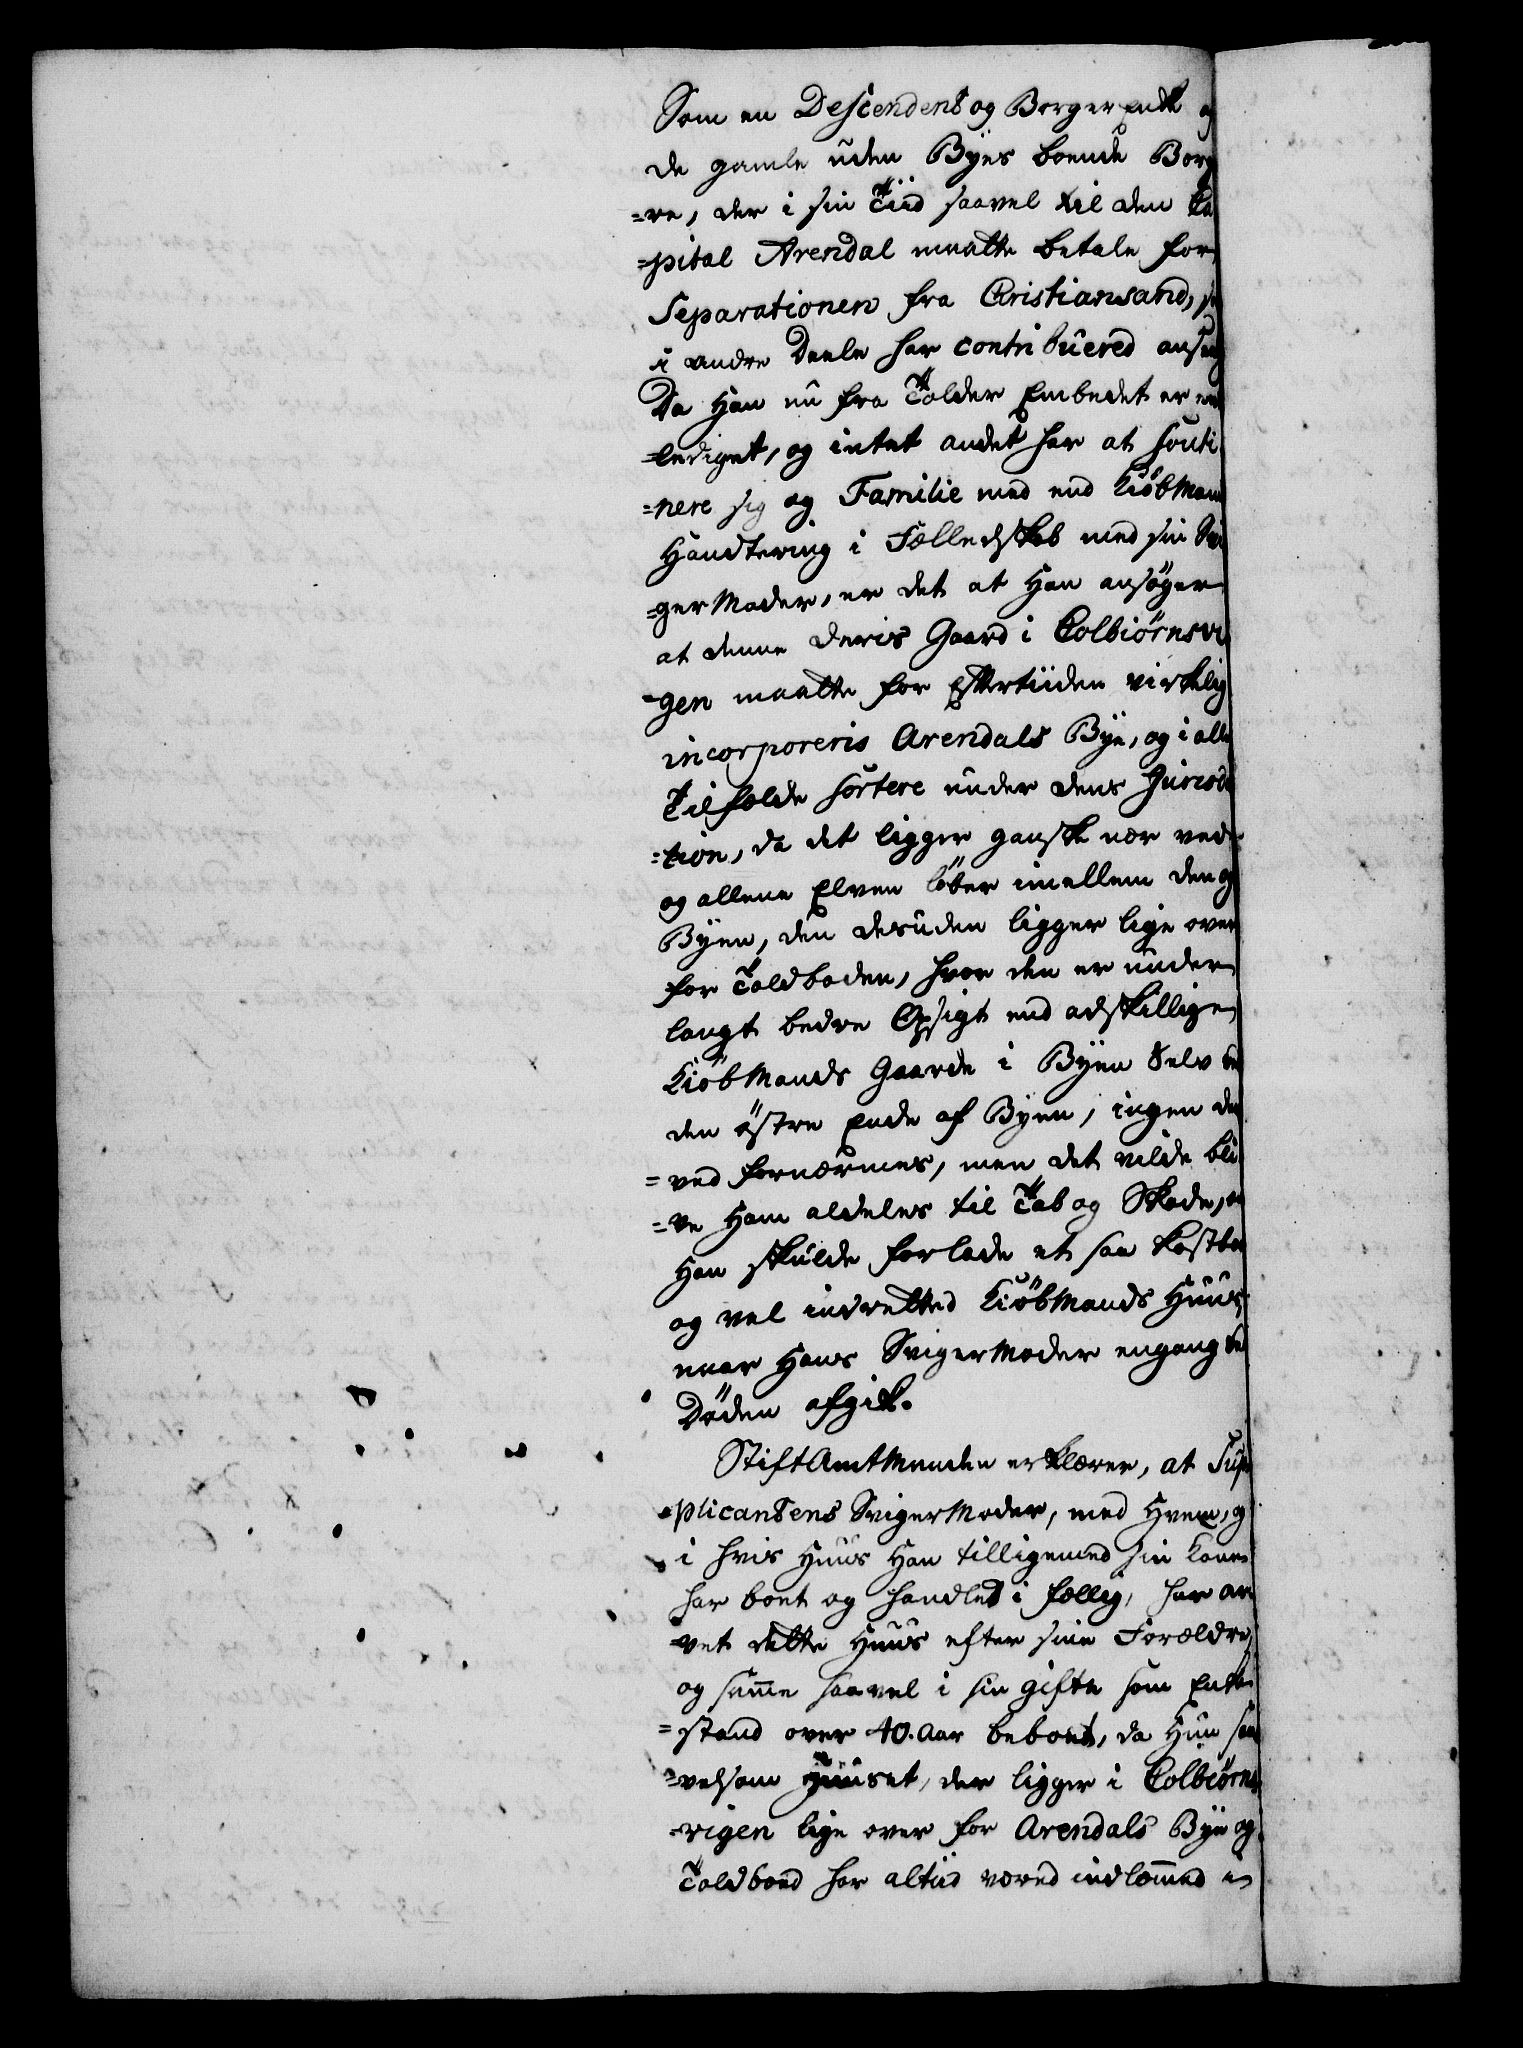 Som en Descendent og Borger Enke
de gamle uden Byes boende Borg
=re, der i sin Tiid saavel til den Ca
=pital Arendal maatte betale for
Separationen fra Christiansand,
i andre Deele har contribuered
Da Han nu fra Tolder Embedet er ent
=lediget, og intet andet har at souti
=nere sig og Familie med end Kiöbmand
Handtering i Fælledskab med sin Svi
=germoder, er det at Han ansöger
at denne Deris Gaard i Colbiörnsvi
=gen maatte for Eftertiiden virkelig
incorporeris Arendals Bye, og i alle
Tilfælde sortere under dens Jurisdi
=tion, da det ligger ganske nær ved
og allene Elven löber imellem den og
Byen, den desuden ligger lige over
for Toldboden, hvor den er under
langt bedre Opsigt end adskillige
Kiöbmands Gaarde i Byen Selv
den östre Ende af Byen, ingen der
=ved fornærmes, men det vilde bli
=ve Ham aldeles til Tab og Skade,
Han skulde forlade et saa kostba
og vel indretted Kiöbmands Huus,
naar Hans Svigermoder engang ved
Döden afgik.
Stiftamtmanden erklærer, at Sup
=plicantens Svigermoder, med Hvem, og
i hvis Huus Han tilligemed sin Kone
har boet og handlet i fællig, har ar
=vet dette Huus efter sine Forældre
og samme saavel i sin gifte som Enke
=stand over 40. Aar beboet, da Hun saa
=velsom Huuset, der ligger i Colbiörns
=vigen lige over for Arendals Bye og
Toldboed har altiid været indlemmed i